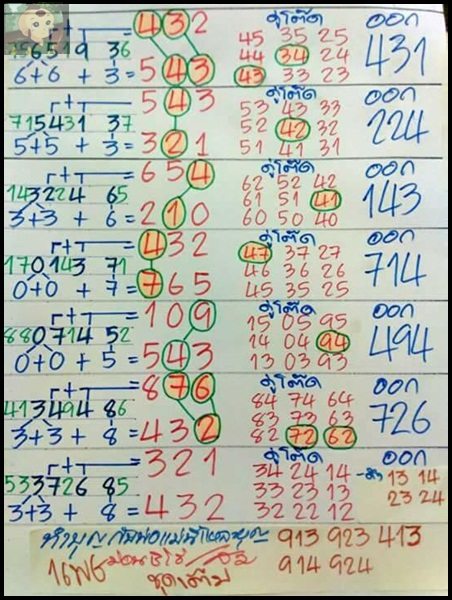 432 คู่โต๊ด ออก
45 35 25
756519 36 44 34 24 431
6+6 + 3 = 543 43 33 23
543 คู่โต๊ด ออก
53 43 33
715431 37 52 42 32 224
5+5 + 3 = 321 51 41 31
654 คู่โต๊ด ออก
62 52 42
143224 65 61 51 41 143
3+3 + 6 = 210 60 50 40
432 คู่โต๊ด ออก
47 37 27
170143 71 46 36 26 714
0+0 + 7 = 765 45 35 25
109 คู่โต๊ด ออก
15 05 95
880714 52 14 04 94 494
0+0 + 5 = 543 13 03 93
876 คู่โต๊ด ออก
84 74 64
413494 86 83 73 63 726
3+3 + 8 = 432 82 72 62
321 คู่โต๊ด ออก
34 24 14 13 14
533726 85 33 23 13 23 24
3+3 + 8 = 432 32 22 12
ทำบุญ 913 923 413
914 924